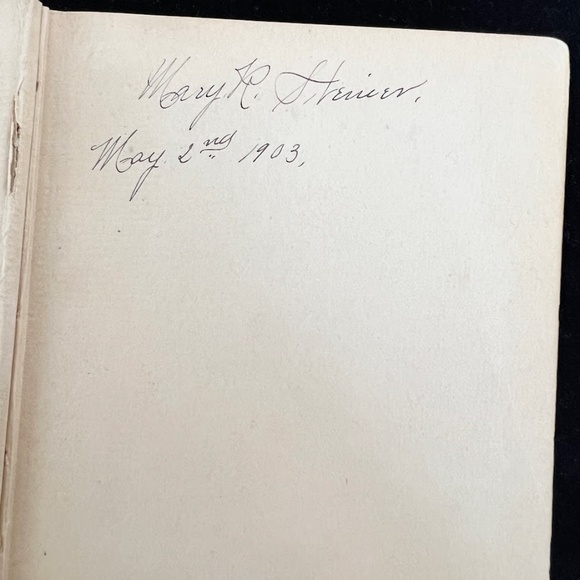 Mary K. Steiner.
May 2nd 1903,